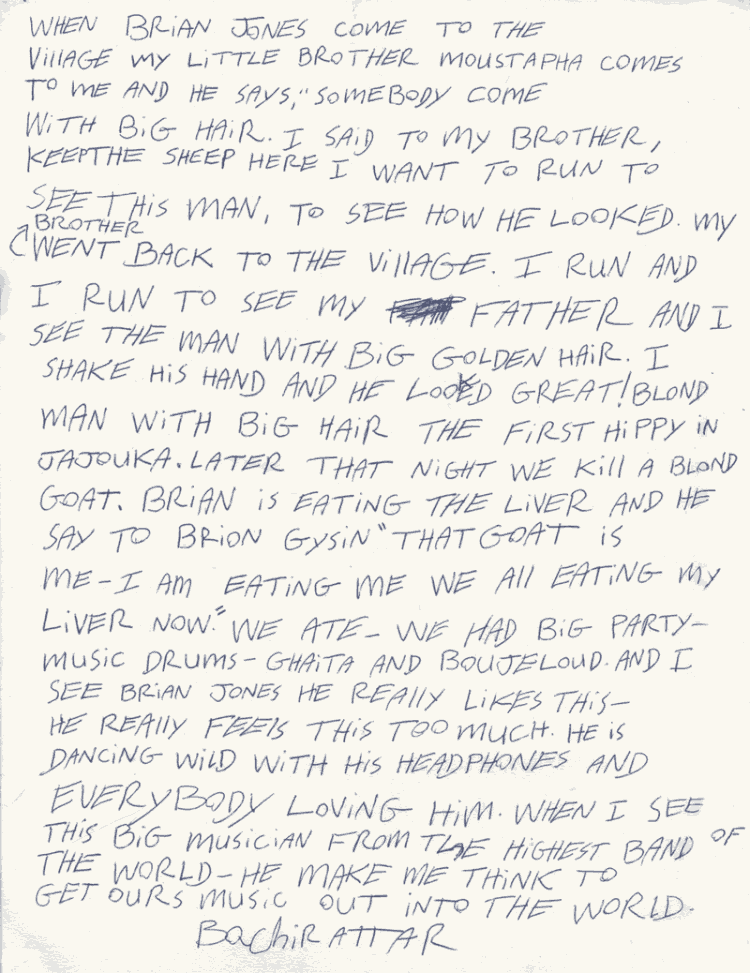 WHEN BRIAN JONES COME TO THE
VillAGE MY LITTLE BROTHER MOUSTAPHA COMES
TO ME AND HE SAYS, "SOMEBODY COME
WITH BIG HAIR. I SAID TO MY BROTHER,
KEEPTHE SHEEP HERE I WANT TO RUN TO
SEE THIS MAN, TO SEE HOW HE LOOKED. MY
BROTHER
WENT BACK TO THE VIllAGE. I RUN AND
I RUN TO SEE MY FATHER AND I
SEE THE MAN WITH BIG GOLDEN HAIR. I
SHAKE HIS HAND AND HE LOOKED GREAT! BLOND
MAN WITH BIG HAIR THE FIRST HIPPY IN
JAJOUKA. LATER THAT NIGHT WE KIll A BLOND
GOAT. BRIAN IS EATING THE LIVER AND HE
SAY TO BRION GYSIN "THAT GOAT IS
ME - I AM EATING ME WE All EATING MY
LIVER NOW." WE ATE - WE HAD BIG PARTY -
MUSIC DRUMS - GHAITA AND BOUJELOUD. AND I
SEE BRIAN JONES HE REAlly LIKES THIS -
HE REAlly FEELS THIS TOO MUCH. HE IS
DANCING WILD WITH HIS HEADPHONES AND
EVERYBODY LOVING HIM. WHEN I SEE
THIS BIG MUSICIAN FROM THE HIGHEST BAND OF
THE WORLD - HE MAKE ME THINK TO
GET OURS MUSIC OUT INTO THE WORLD.
BACHIR ATTAR